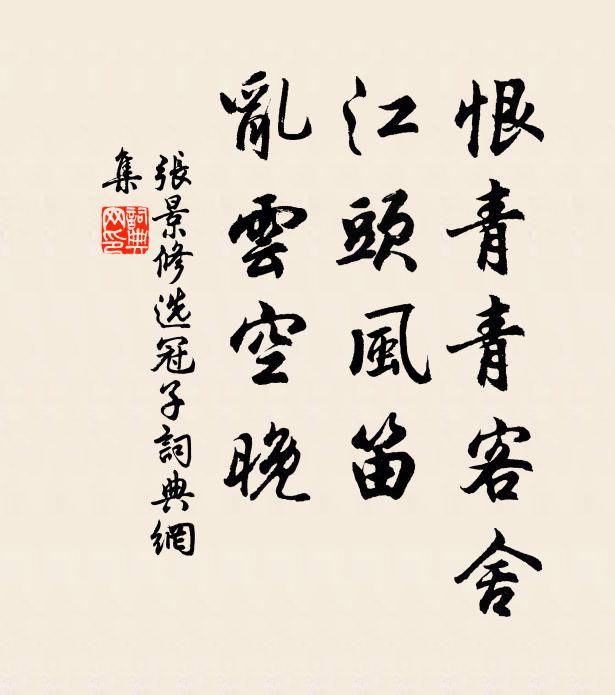 恨青青客舍
江頭風笛
亂雲空晚
張景修选冠子詞典網
集
詞典网印